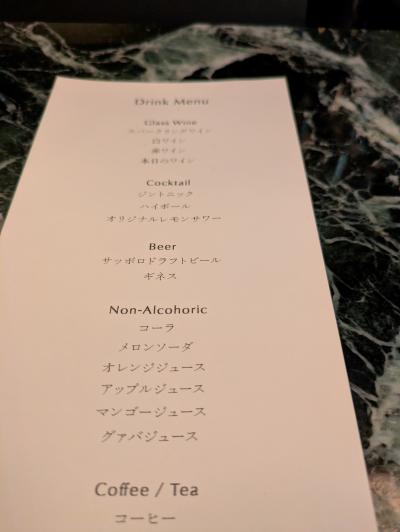 Drink Menu
Glass Wine
スパークリングワイン
白ワイン
赤ワイン
本日のワイン
Cocktail
ジントニック
ハイボール
オリジナルレモンサワー
Beer
サッポロドラフトビール
ギネス
Non-Alcohoric
コーラ
メロンソーダ
オレンジジュース
アップルジュース
マンゴージュース
グァバジュース
Coffee / Tea
コーヒー